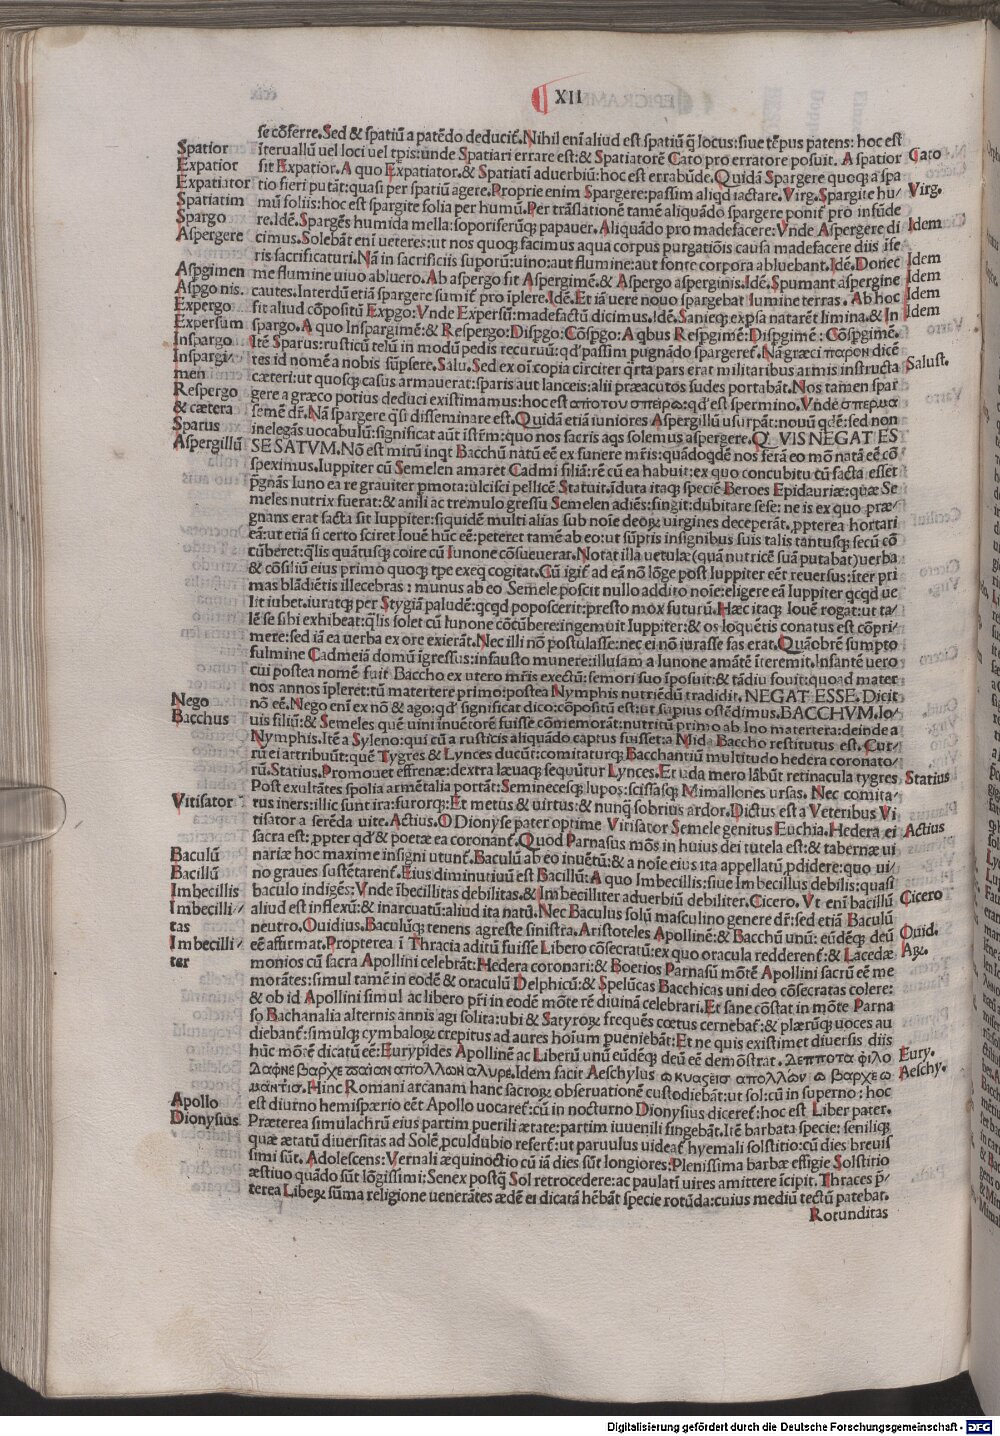 XII
se cõferre. Sed & spatiũ a patẽdo deducit̃. Nihil eni aliud est spatiũ q̃ locus: siue tẽpus patens: hoc est
Spatior
ĩteruallũ uel loci uel tp̃is: unde Spatiari errare est: & Spatiatorẽ Cato pro erratore posuit. A spatior
Cato
Expatior
sit Expatior. A quo Expatiator. & Spatiati aduerbiũ: hoc est errabũde. Quidã Spargere quoqꝫ a spa
Expatiator
tio fieri putãt: quasi per spatiũ agere. Proprie enim Spargere: passim aliqd iactare. Virg. Spargite hu/
Virg.
Spatiatim
mũ foliis: hoc est spargite folia per humũ. Per trãslationẽ tamẽ aliquãdo spargere ponit̃ pro infũde
Spargo
re. Idẽ. Spargẽs humida mella: soporiferũqꝫ papauer. Aliquãdo pro madefacere: Vnde Aspergere di
Idem
Aspergere
cimus. Solebãt eni ueteres: ut nos quoqꝫ facimus aqua corpus purgatiõis causa madefacere diis ĩfe
ris sacrificaturi. Nã in sacrificiis supoꝝ: uino: aut flumine: aut fonte corpora abluebant. Idẽ. Donec
Idem
Aspgimen
me flumine uiuo abluero. Ab aspergo fit Aspergimẽ: & Aspergo asperginis. Idẽ. Spumant aspergine
Idem
Aspgo nis.
cautes. Interdũ etiã spargere sumit̃ pro ĩplere. Idẽ. Et iã uere nouo spargebat lumine terras. Ab hoc
Idem
Expergo
fit aliud cõpositũ Expgo: Vnde Expersũ: madefactũ dicimus. Idẽ. Sanieqꝫ expsa natarẽt limina. & In
Idem
Expersum
spargo. A quo Inspargimẽ: & Respergo: Dispgo: Cõspgo: A qbus Respgimẽ: Dispgimẽ: Cõspgimẽ.
Inspargo
Itẽ Sparus: rusticũ telũ in modũ pedis recuruũ: qd' passim pugnãdo spargeret̃. Nã græci παρον dicẽ
Inspargi/
tes id nomẽ a nobis sũpsere. Salu. Sed ex oĩ copia circiter qrta pars erat militaribus armis instructa
Salust.
men
cæteri: ut quosqꝫ casus armauerat: sparis aut lanceis: alii præacutos sudes portabãt. Nos tamen spar
Respergo
gere a græco potius deduci existimamus: hoc est απο του σπειρω: qd' est spermino. Vnde σπερμα
& cætera
semẽ dr̃. Nã spargere q̃si disseminare est. Quidã etiã iuniores Aspergillũ usurpãt: nouũ qdẽ: sed non
Sparus
inelegãs uocabulũ: significat aũt ist̃m: quo nos sacris aqs solemus aspergere. Q VIS NEGAT ES
Aspergillũ
SE SATVM. Nõ est mirũ inqt Bacchũ natũ eẽ ex funere mr̃is: quãdoqdẽ nos ferã eo mõ natã eẽ cõ
speximus. Iuppiter cũ Semelen amaret Cadmi filiã: rẽ cũ ea habuit: ex quo concubitu cũ facta esset
pgnãs Iuno ea re grauiter pmota: ulcisci pellicẽ Statuit. iduta itaqꝫ speciẽ Beroes Epidauriæ: quæ Se
meles nutrix fuerat: & anili ac tremulo gressu Semelen adiẽs: fingit: dubitare sese: ne is ex quo præ/
gnans erat facta sit Iuppiter: siquidẽ multi alias sub noĩe deoꝝ uirgines deceperãt. ppterea hortari
eã: ut etiã si certo sciret Iouẽ hũc eẽ: peteret tamẽ ab eo: ut sũptis insignibus suis talis tantusqꝫ secũ cõ
cũberet: q̃lis quãtusqꝫ coire cũ Iunone cõsueuerat. Notat illa uetula: (quã nutricẽ suã putabat) uerba
& cõsiliũ eius primo quoqꝫ tp̃e exeq cogitat. Cũ igit̃ ad eã nõ lõge post Iuppiter eẽt reuersus: iter pri
mas blãdiẽtis illecebras: munus ab eo Semele poscit nullo addito noĩe: eligere eã Iuppiter qcqd ue
lit iubet. iuratqꝫ per Stygiã paludẽ: qcqd poposcerit: presto mox futurũ. Hæc itaqꝫ Iouẽ rogat: ut ta/
lẽ se sibi exhibeat: q̃lis solet cũ Iunone cõcũbere: ingemuit Iuppiter: & os loquẽtis conatus est cõpri/
mere: sed iã ea uerba ex ore exierãt. Nec illi nõ postulasse: nec ei nõ iurasse fas erat. Quãobrẽ sumpto
fulmine Cadmeiã domũ ĩgressus: infausto munere: illusam a Iunone amãtẽ ĩteremit. Infantẽ uero
cui postea nomẽ fuit Baccho ex utero mr̃is exectũ: femori suo ĩposuit: & tãdiu fouit: quoad mater
nos annos ĩpleret: tũ materteræ primo: postea Nymphis nutriẽdũ tradidit. NEGAT ESSE. Dicit
Nego
nõ eẽ. Nego eni ex nõ & ago: qd' significat dico: cõpositũ est: ut supius ostẽdimus. BACCHVM. Io/
Bacchus
uis filiũ: & Semeles quẽ uini inuẽtorẽ fuisse cõmemorãt: nutritũ primo ab Ino matertera: deinde a
Nymphis. Itẽ a Syleno: qui cũ a rusticis aliquãdo captus fuisset: a Mida Baccho restitutus est. Cur/
rũ ei attribuũt: quẽ Tygres & Lynces ducũt: comitaturqꝫ Bacchantiũ multitudo hedera coronato/
rũ. Statius. Promouet effrenæ: dextra læuaqꝫ sequũtur Lynces. Et uda mero lãbũt retinacula tygres
Statius
Post exultãtes spolia armẽtalia portãt: Seminecesqꝫ lupos: scissasqꝫ Mimallones ursas. Nec comita/
Vitisator
tus iners: illic sunt ira: furorqꝫ: Et metus & uirtus: & nunq̃ sobrius ardor. Dictus est a Veteribus Vi
tisator a serẽda uite. Actius. O Dionyse pater optime Vitisator Semele genitus Euchia. Hedera ei
Actius
sacra est: ppter qd' & poetæ ea coronant̃. Quod Parnasus mõs in huius dei tutela est: & tabernæ ui
Baculũ
nariæ hoc maxime insigni utunt̃. Baculũ ab eo inuẽtũ: & a noĩe eius ita appellatũ pdidere: quo ui/
Bacillũ
no graues sustẽtarent̃. Eius diminutiuũ est Bacillũ: A quo Imbecillis: siue Imbecillus debilis: quasi
Imbecillis
baculo indigẽs: Vnde ĩbecillitas debilitas. & Imbecilliter aduerbiũ debiliter. Cicero. Vt eni bacillũ
Cicero
Imbecilli/
aliud est inflexũ: & inarcuatũ: aliud ita natũ. Nec Baculus solũ masculino genere dr̃: sed etiã Baculũ
tas
neutro. Ouidius. Baculũqꝫ tenens agreste sinistra. Aristoteles Apollinẽ: & Bacchũ unũ: eũdẽqꝫ deũ
Ouid.
Imbecilli/
eẽ affirmat. Propterea ĩ Thracia aditũ fuisse Libero cõsecratũ: ex quo oracula redderent̃: & Lacedæ
Aꝝ.
ter
monios cũ sacra Apollini celebrãt: Hedera coronari: & Boetios Parnasũ mõtẽ Apollini sacrũ eẽ me
morãtes: simul tamẽ in eodẽ & oraculũ Delphicũ: & spelũcas Bacchicas uni deo cõsecratas colere:
& ob id Apollini simul ac libero pr̃i in eodẽ mõte rẽ diuinã celebrari. Et sane cõstat in mõte Parna
so Bachanalia alternis annis agi solita: ubi & Satyroꝝ frequẽs cœtus cernebat̃: & plærũqꝫ uoces au
diebant̃: simulqꝫ cymbaloꝝ crepitus ad aures hoĩum pueniebãt: Et ne quis existimet diuersis diis
hũc mõtẽ dicatũ eẽ: Eurypides Apollinẽ ac Liberũ unũ eũdẽqꝫ deũ eẽ demõstrat. Δεσποτα φιλο
Eury.
δαφνε βαρχε παιαν απολλων αλυρε. Idem facit Aeschylus ω κυασεισ απολλων ω βαρχε ω
Aeschy.
μαντισ. Hinc Romani arcanam hanc sacroꝝ obseruationẽ custodiebãt: ut sol: cũ in superno: hoc
Apollo
est diurno hemispærio eẽt Apollo uocaret̃: cũ in nocturno Dionysius diceret̃: hoc est Liber pater.
Dionysius
Præterea simulachrũ eius partim puerili ætate: partim iuuenili fingebãt. Itẽ barbata specie: seniliqꝫ
quæ ætatũ diuersitas ad Solẽ pculdubio refert̃: ut paruulus uideat̃ hyemali solstitio: cũ dies breuis
simi sũt. Adolescens: Vernali æquinoctio cũ iã dies sũt longiores: Plenissima barbæ effigie Solstitio
æstiuo quãdo sũt lõgissimi: Senex postq̃ Sol retrocedere: ac paulatĩ uires amittere ĩcipit. Thraces p̃/
terea Libeꝝ sũma religione uenerãtes ædẽ ei dicatã hẽbãt specie rotũda: cuius mediũ tectũ patebat.
Rotunditas
Digitalisierung gefördert durch die Deutsche Forschungsgemeinschaft - DFG